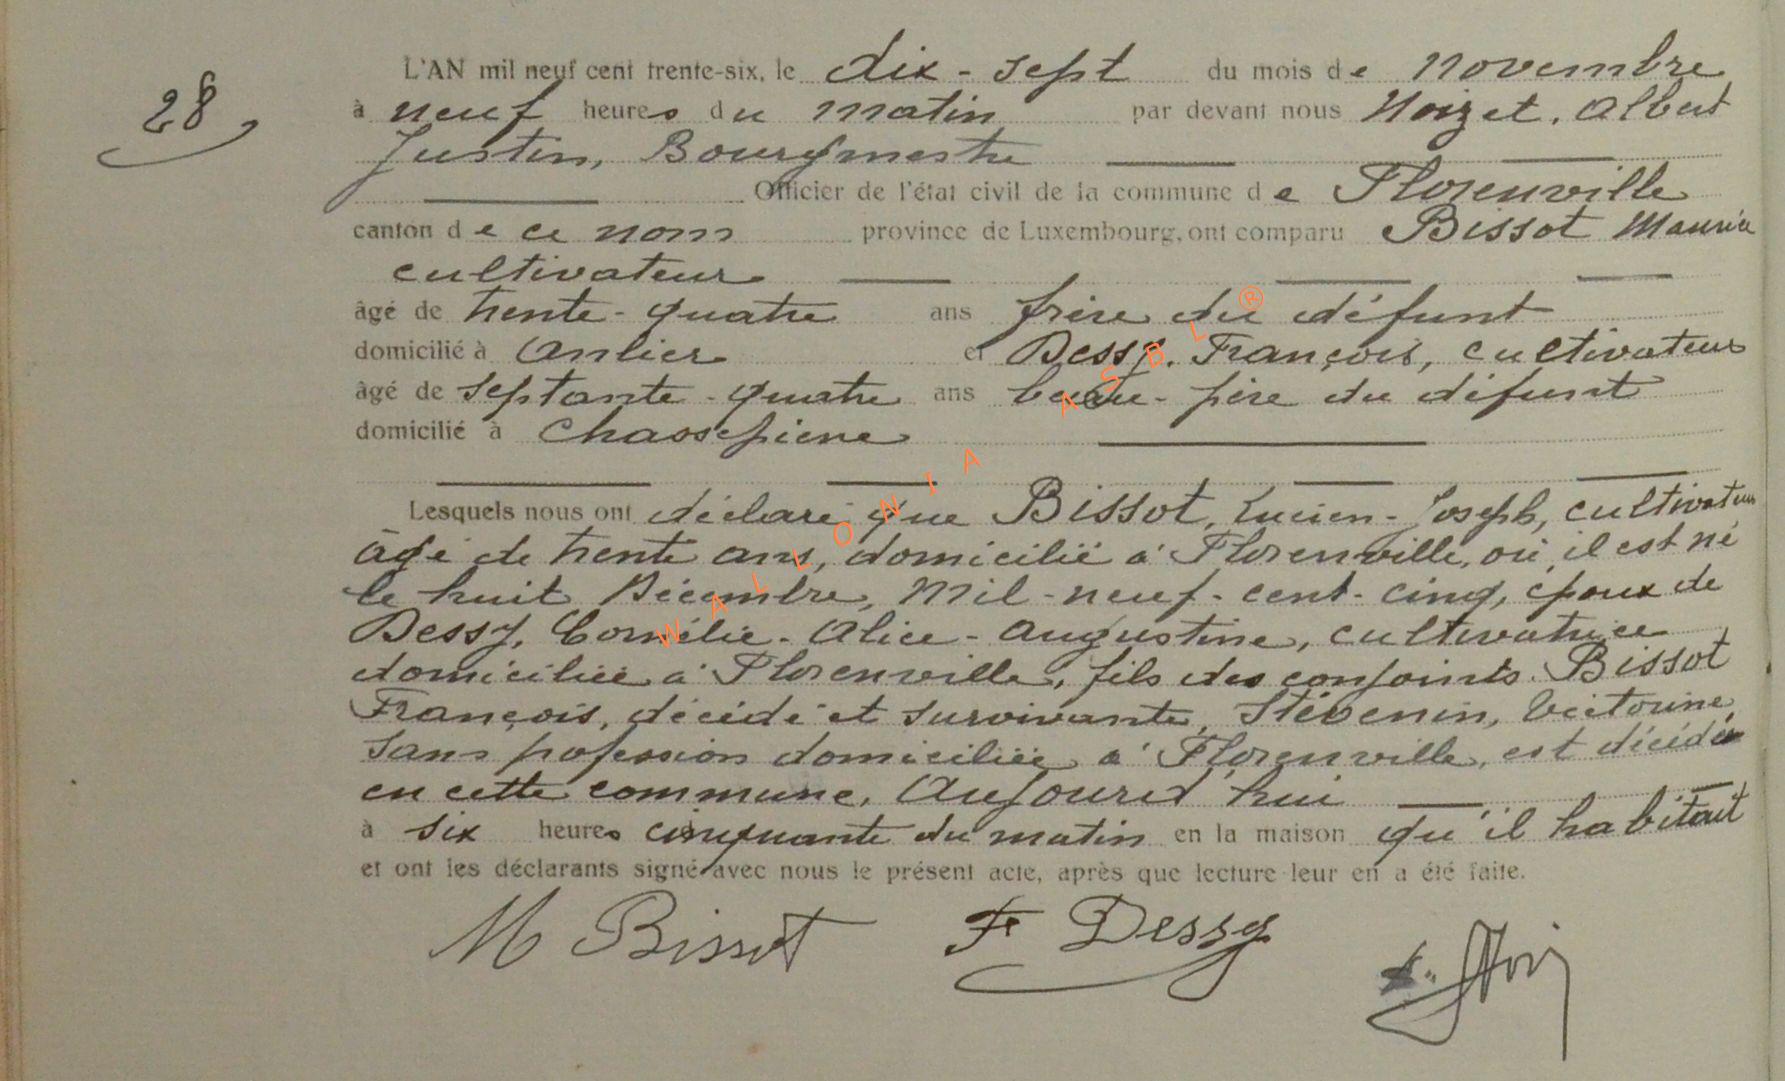 28
L'AN mil neuf cent trente-six, le dix-sept du mois de novembre
à neuf heures du matin par devant nous Noizet, Albert
Justin, Bourgmestre
Officier de l'état civil de la commune de Florenville
canton de ce nom province de Luxembourg, ont comparu Bissot Maurice
cultivateur
âgé de trente-quatre ans frère du défunt
domicilié à Anlier et Dessy, François, cultivateur
âgé de septante-quatre ans beau-père du défunt
domicilié à Chassepierre
Lesquels nous ont déclaré que Bissot, Lucien-Joseph, cultivateur
âgé de trente ans, domicilié à Florenville, où il est né
le huit Décembre, Mil-neuf-cent-cinq, époux de
Dessy, Cornélie-Alice-Augustine, cultivatrice
domiciliée à Florenville, fils des conjoints Bissot
François, décédé et survivante, Stévenin, Victorine,
sans profession domiciliée à Florenville, est décédé
en cette commune, Aujourd'hui
à six heures cinquante du matin en la maison qu'il habitait
et ont les déclarants signé avec nous le présent acte, après que lecture leur en a été faite.
M Bissot F Dessy
WALLONIA ASBL ®